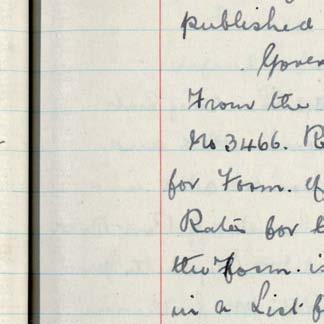 published
Gover
From the
No 3466. R
for Form. of
Rates for t
the Form. is
in a List f